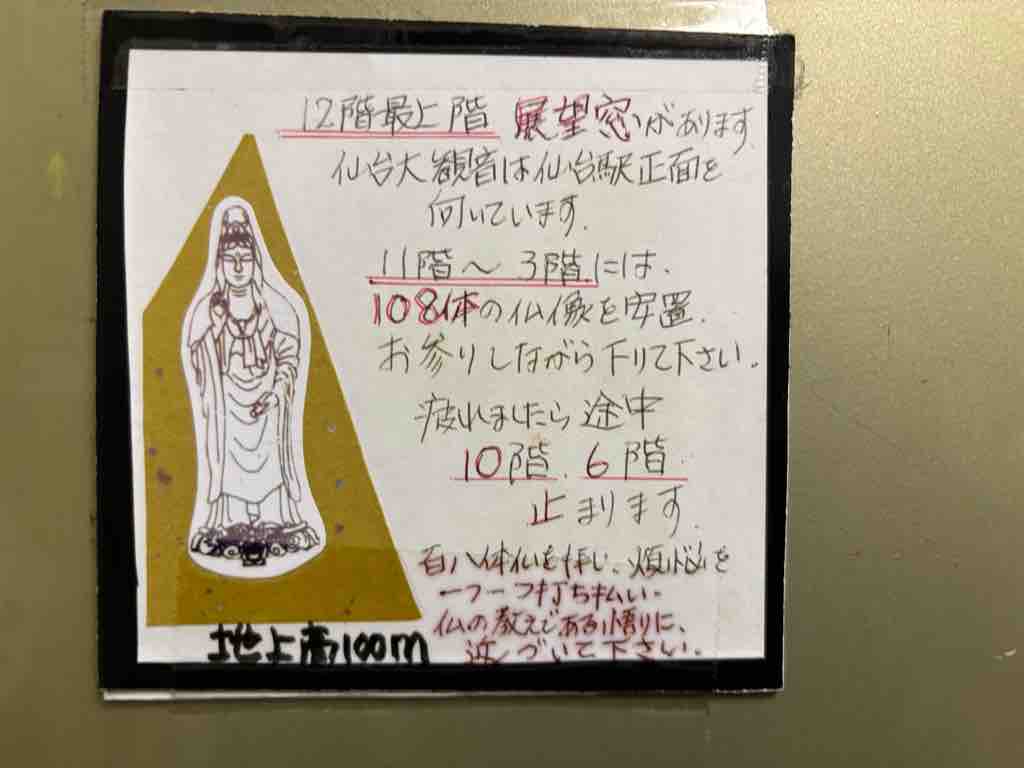 12階最上階 展望窓があります
仙台大観音は仙台駅正面を
向いています.
11階〜3階には.
108体の仏像を安置.
お参りしながら下りて下さい.
疲れましたら途中
10階.6階
止まります.
百八体仏を拝し、煩悩を
一つ一つ打ち払い.
仏の教えである悟りに、
近づいて下さい.
地上高100m